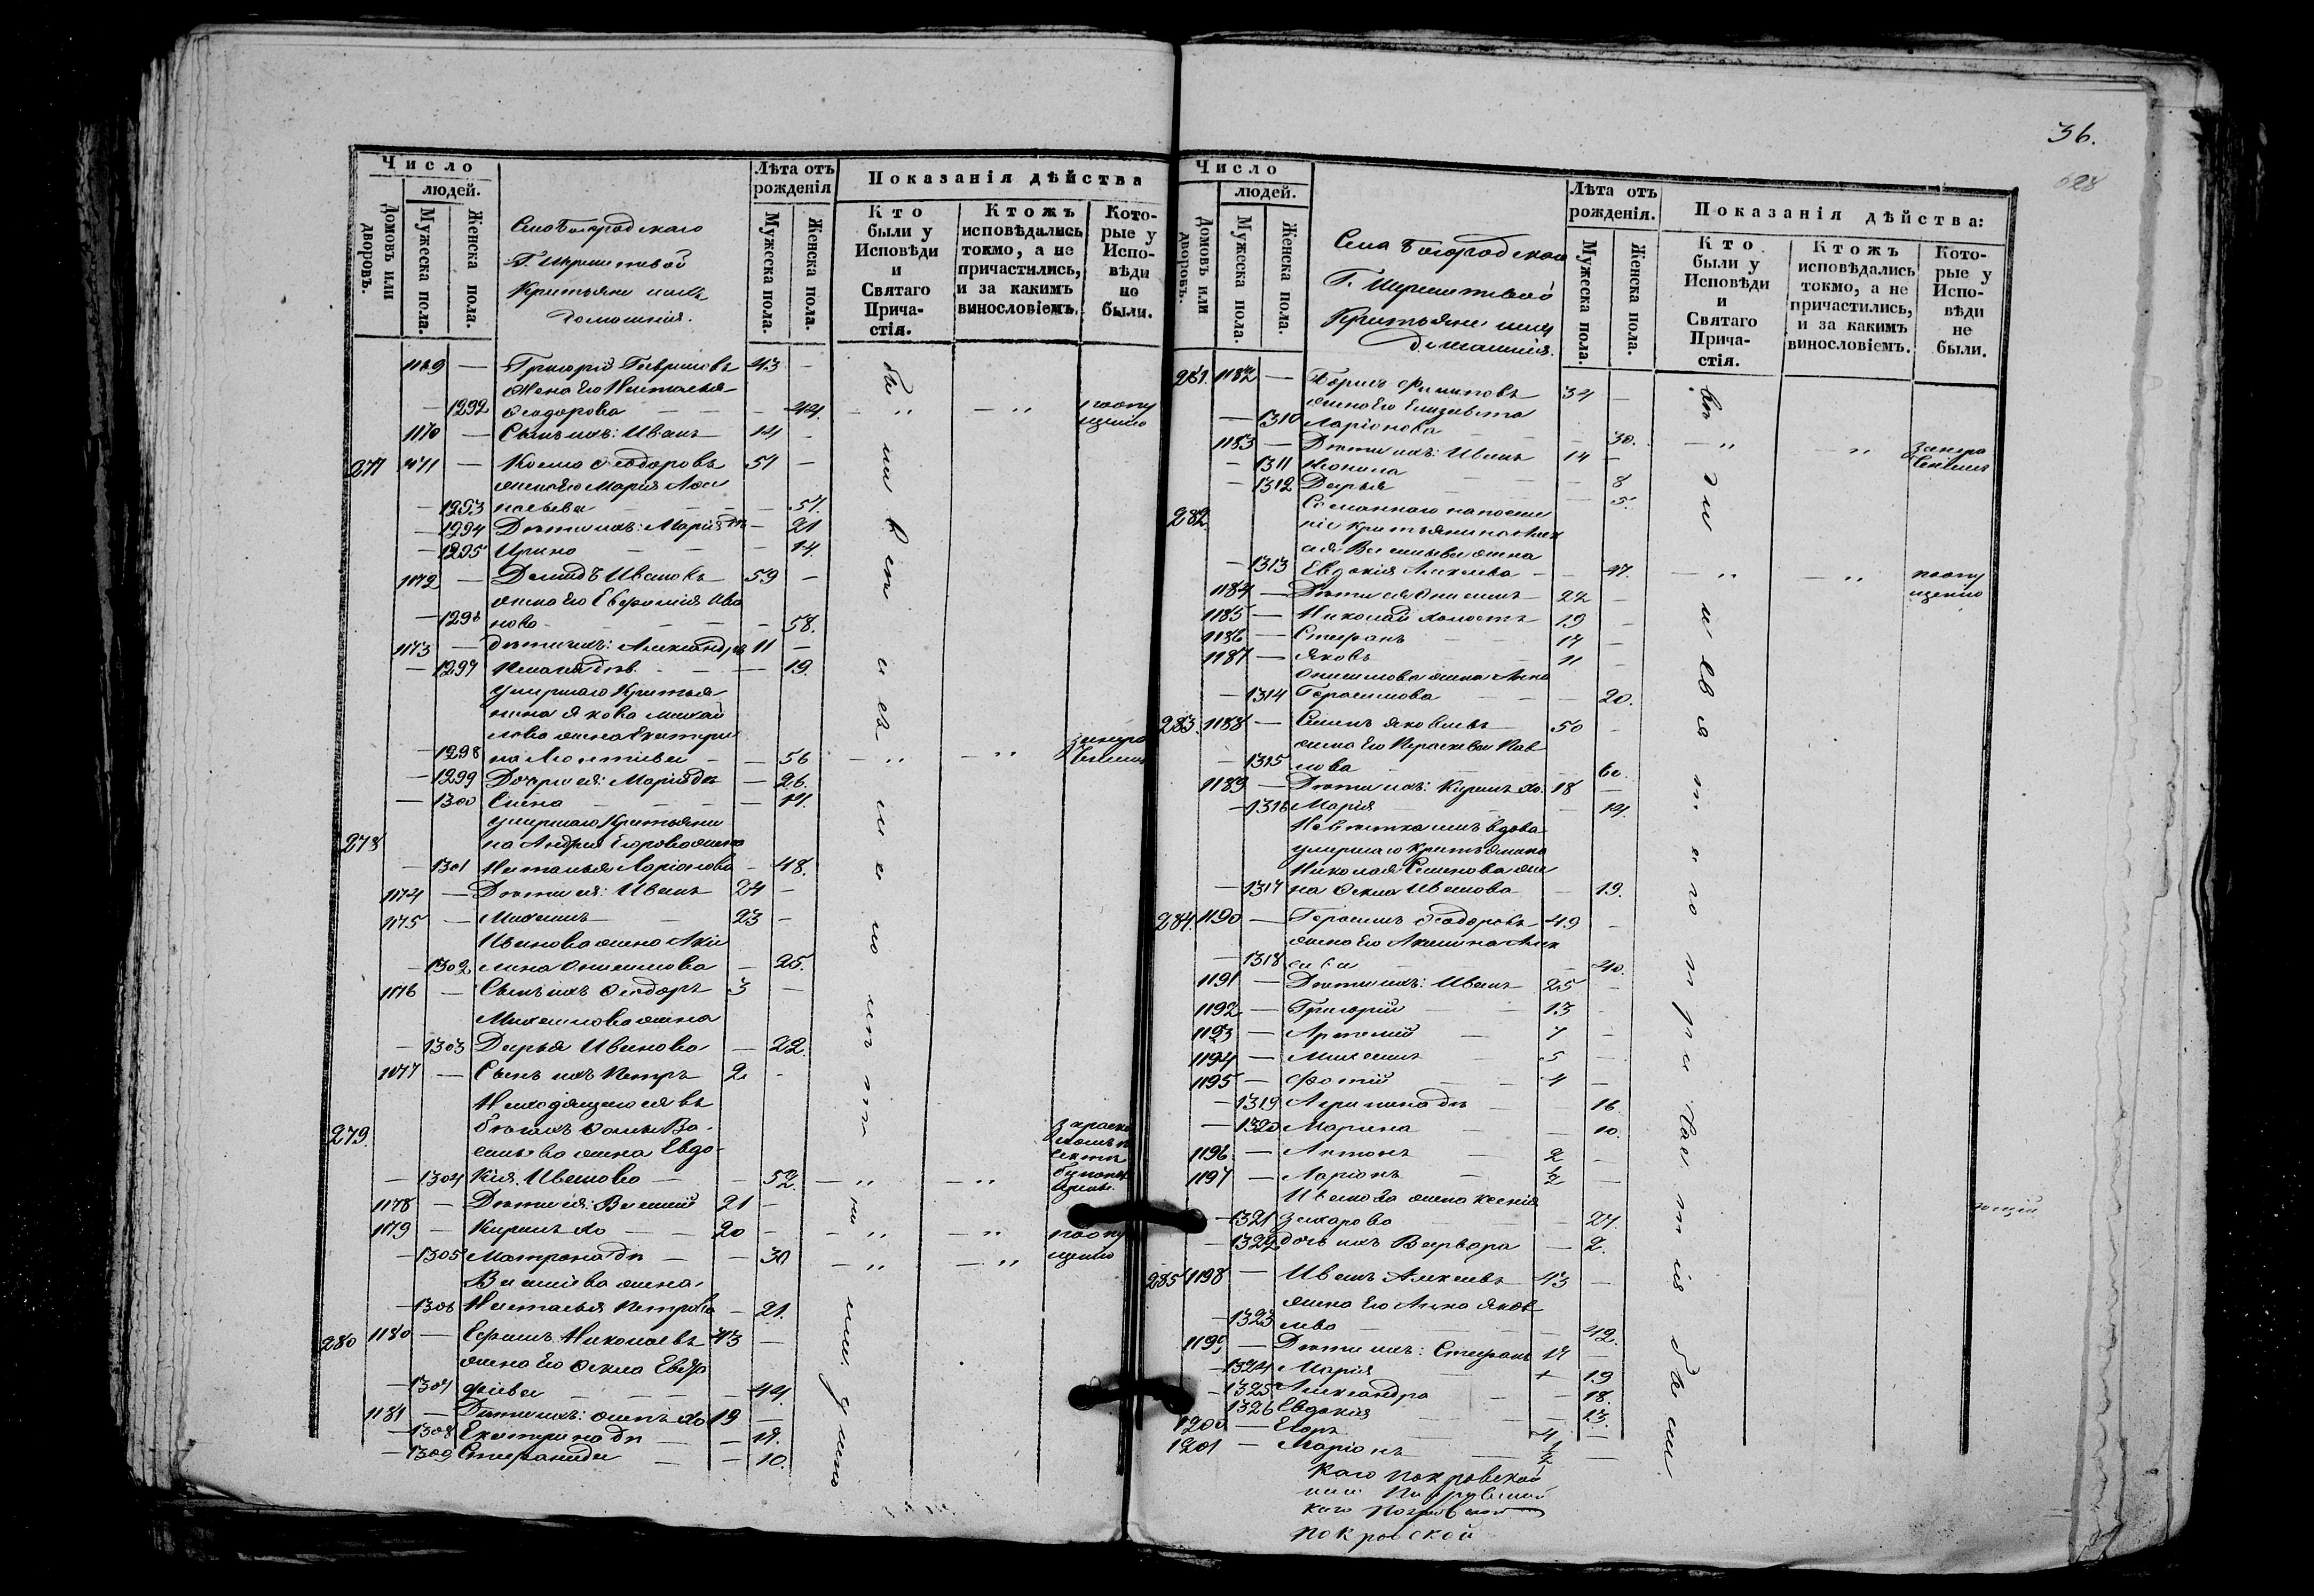 36.
628
Число
людей.
Домовъ или дворовъ.
Мужеска пола.
Женска пола.
Села Богородскаго
Г. Шереметевой
Крестьяне и ихъ
домашнія.
Лѣта отъ рожденія
Мужеска пола.
Женска пола.
Показанія дѣйства
Кто были у Исповѣди и Святаго Причастія.
Ктожъ исповѣдались токмо, а не причастились, и за какимъ винословіемъ.
Которые у Исповѣди не были.
1169 — Григорій Гавриловъ 43 —
Жена его Наталья
— 1292 Феодорова — 44. — „ — „ по опу
щенію
1170 — Сынъ ихъ: Иванъ 14 —
277 1171 — Косма Феодоровъ 51 —
жена его Марія Афа
— 1293 насьева — 51.
— 1294 Дѣти ихъ: Марія дв — 21
— 1295 Ирина — 14.
1172 — Демидъ Ивановъ 59 —
жена его Евфимія Ива
— 1296 нова — 58.
1173 — дѣти ихъ: Александръ 11 —
— 1297 Наталья дв. — 19.
умершаго Крестья
нина Якова Михай
лова жена Екатери
— 1298 на Леонтьева — 56 — „ — „
— 1299 Дочери ея: Марія дв — 26.
— 1300 Елена — 14.
умершаго Крестьяни
278 на Андрея Егорова жена
— 1301 Наталья Ларіонова — 48.
1174 — Дѣти ея: Иванъ 24 —
1175 — Михаилъ 23 —
Иванова жена Аки
— 1302 лина Онисимова — 25.
1176 — Сынъ ихъ Феодоръ 3 —
Михаилова жена
— 1303 Дарья Иванова — 22.
1177 — Сынъ ихъ Петръ 2 —
Находящагося въ
279. бѣгахъ Фомы Ва
сильева жена Евдо-
— 1304 кія Иванова — 52. — „ — „
1178 — Дѣти ея: Василій 21 —
1179 — Кирилъ хо — 20 — „ — „ по опу
— 1305 Матрона дв — 30 — „ — „ щенію
Васильева жена
— 1306 Наталья Петрова — 21.
280 1180 — Ефимъ Николаевъ 43 —
жена его Фекла Евста
— 1307 фіева — 44.
1181 — Дѣти ихъ: Осипъ хо 19 —
— 1308 Екатерина дв — 18.
— 1309 Степанида — 10.
Число
людей.
Домовъ или дворовъ.
Мужеска пола.
Женска пола.
Села Богородскаго
Г. Шереметевой
Крестьяне и ихъ
домашнія.
Лѣта отъ рожденія.
Мужеска пола.
Женска пола.
Показанія дѣйства:
Кто были у Исповѣди и Святаго Причастія.
Ктожъ исповѣдались токмо, а не причастились, и за какимъ винословіемъ.
Которые у Исповѣди не были.
281. 1182 — Борисъ Филиповъ 34 —
жена его Елизавета
— 1310 Ларіонова — 30. — „ — „
1183 — Дѣти ихъ: Иванъ 14 —
— 1311 Неонила — 8
— 1312 Дарья — 5.
282. Сосланнаго на поселе
ніе крестьянина Алек
сѣя Васильева жена
— 1313 Евдокія Алексѣева — 47. — „ — „ по опу
щенію
1184 — Дѣти ея Онисимъ 22 —
1185 — Николай холостъ 19 —
1186 — Стефанъ 14 —
1187 — Яковъ 11 —
Онисимова жена Анна
— 1314 Герасимова — 20.
283. 1188 — Семенъ Яковлевъ 50 —
жена его Параскева Пав
— 1315 лова — 60.
1189 — Дѣти ихъ: Кирилъ хо. 18 —
— 1316 Марія — 14.
Невѣстка ихъ вдова
умершаго крестьянина
Николая Семенова же
— 1317 на Фекла Иванова — 19.
284. 1190 — Герасимъ Феодоровъ 49 —
жена его Акилина Алек
— 1318 — 40.
1191 — Дѣти ихъ: Иванъ 25 —
1192 — Григорій 13 —
1193 — Артемій 7 —
1194 — Михаилъ 5 —
1195 — Фотій 4 —
— 1319 Агрипина дв — 16
— 1320 Марина — 10.
1196 — Антонъ 2 —
1197 — Ларіонъ ½ —
Иванова жена Ксенія
— 1321 Захарова — 24
— 1322 дочь ихъ Варвара — 2.
285 1198 — Иванъ Алексѣевъ 43 —
жена его Анна Яков
— 1323 лева — 42.
1199 — Дѣти ихъ: Стефанъ 14 —
— 1324 Марія — 19
— 1325 Александра — 18.
— 1326 Евдокія — 13.
1200 — Егоръ 4 —
1201 — Ларіонъ ½ —
каго покровской
покровской